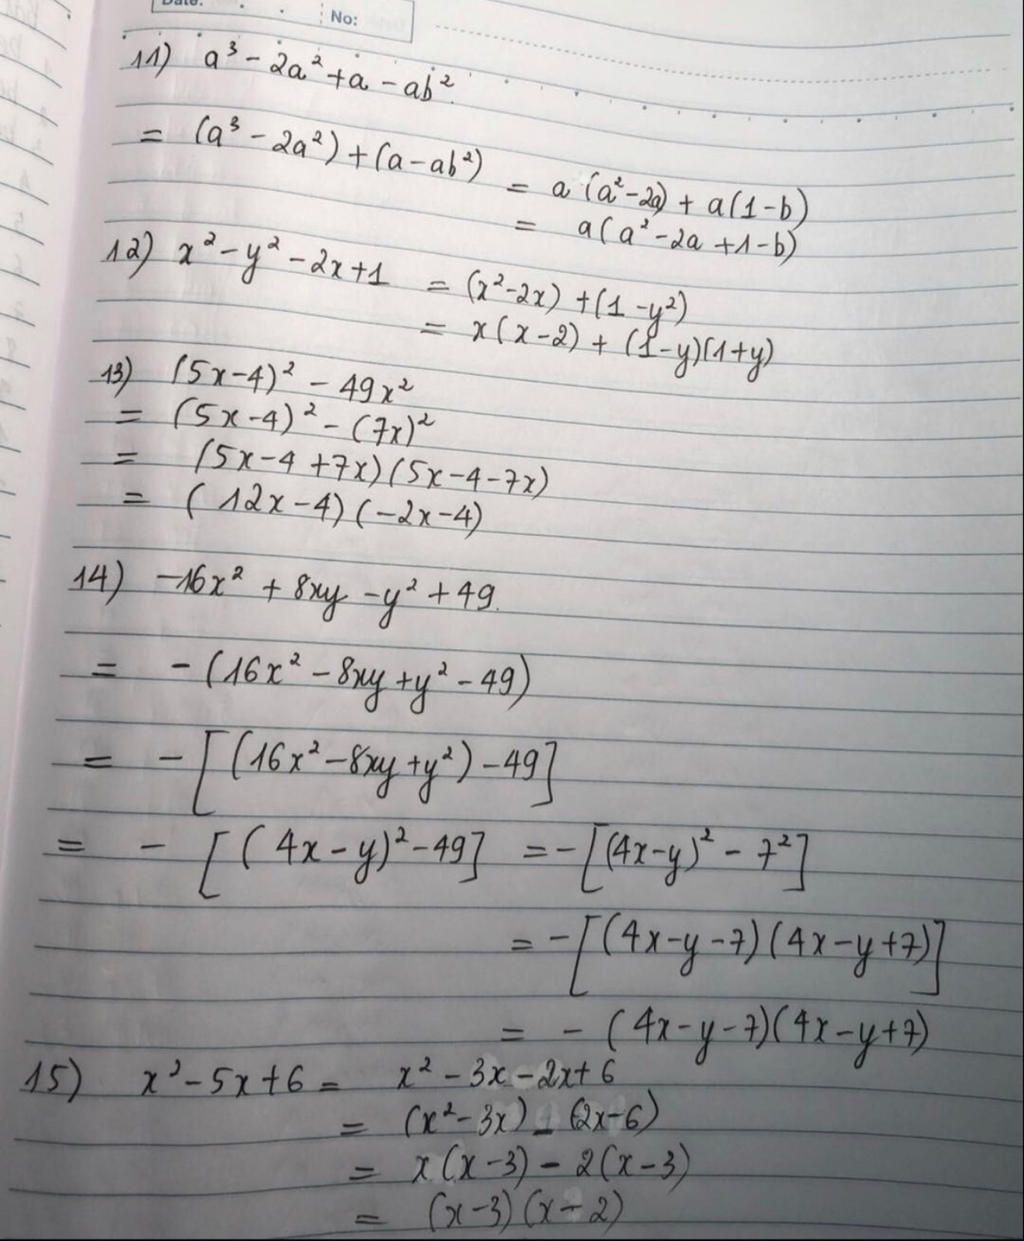 Date: No:
11) a³ - 2a² + a - ab²
= (a³ - 2a²) + (a - ab²) = a (a² - 2a) + a(1 - b)
= a(a² - 2a + 1 - b)
12) x² - y² - 2x + 1 = (x² - 2x) + (1 - y²)
= x(x - 2) + (1 - y)(1 + y)
13) (5x - 4)² - 49x²
= (5x - 4)² - (7x)²
= (5x - 4 + 7x)(5x - 4 - 7x)
= (12x - 4)(-2x - 4)
14) -16x² + 8xy - y² + 49
= -(16x² - 8xy + y² - 49)
= -[(16x² - 8xy + y²) - 49]
= -[(4x - y)² - 49] = -[(4x - y)² - 7²]
= -[(4x - y - 7)(4x - y + 7)]
= -(4x - y - 7)(4x - y + 7)
15) x² - 5x + 6 = x² - 3x - 2x + 6
= (x² - 3x) - (2x - 6)
= x(x - 3) - 2(x - 3)
= (x - 3)(x - 2)